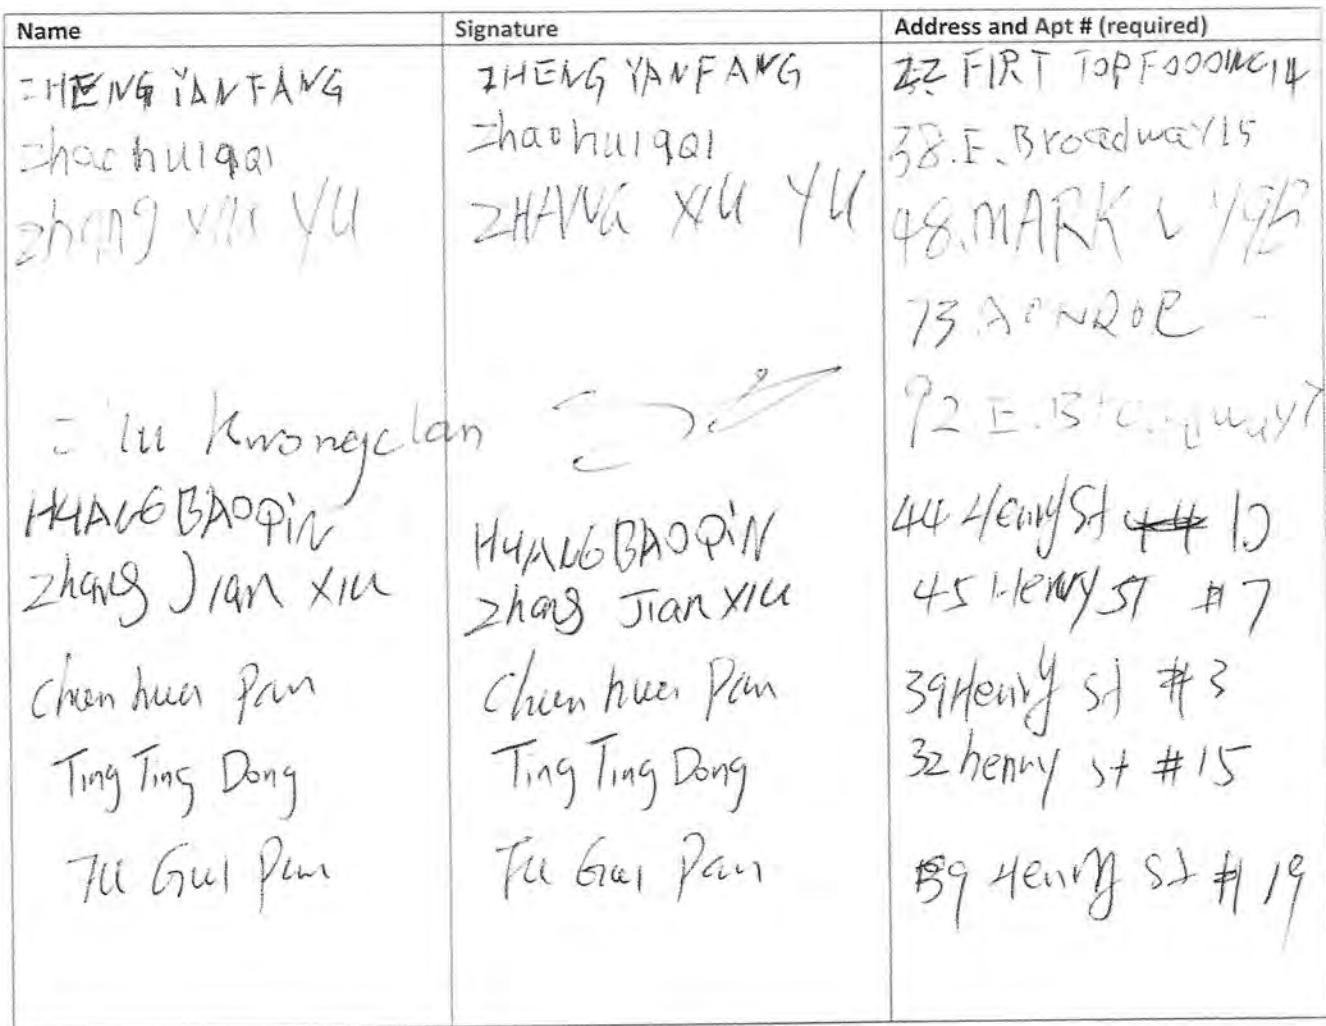 Name Signature Address and Apt # (required)
ZHENG YANFANG ZHENG YANFANG 22 FIRT TOP 14
zhaohuiqai zhaohuiqai 38.E. Broadway 15
zhang XIU YU ZHANG XIU YU 48.MARK
73
Kwong 92 E.
HUANG BAOQiN HUANG BAOQiN 44 Henry St 10
Zhang Jian XIU Zhang Jian XIU 45 Henry ST #7
Chun hua Pan Chun hua Pan 39 Henry St #3
Ting Ting Dong Ting Ting Dong 32 henry st #15
Fu Gui Pan Fu Gui Pan 39 Henry St # 19